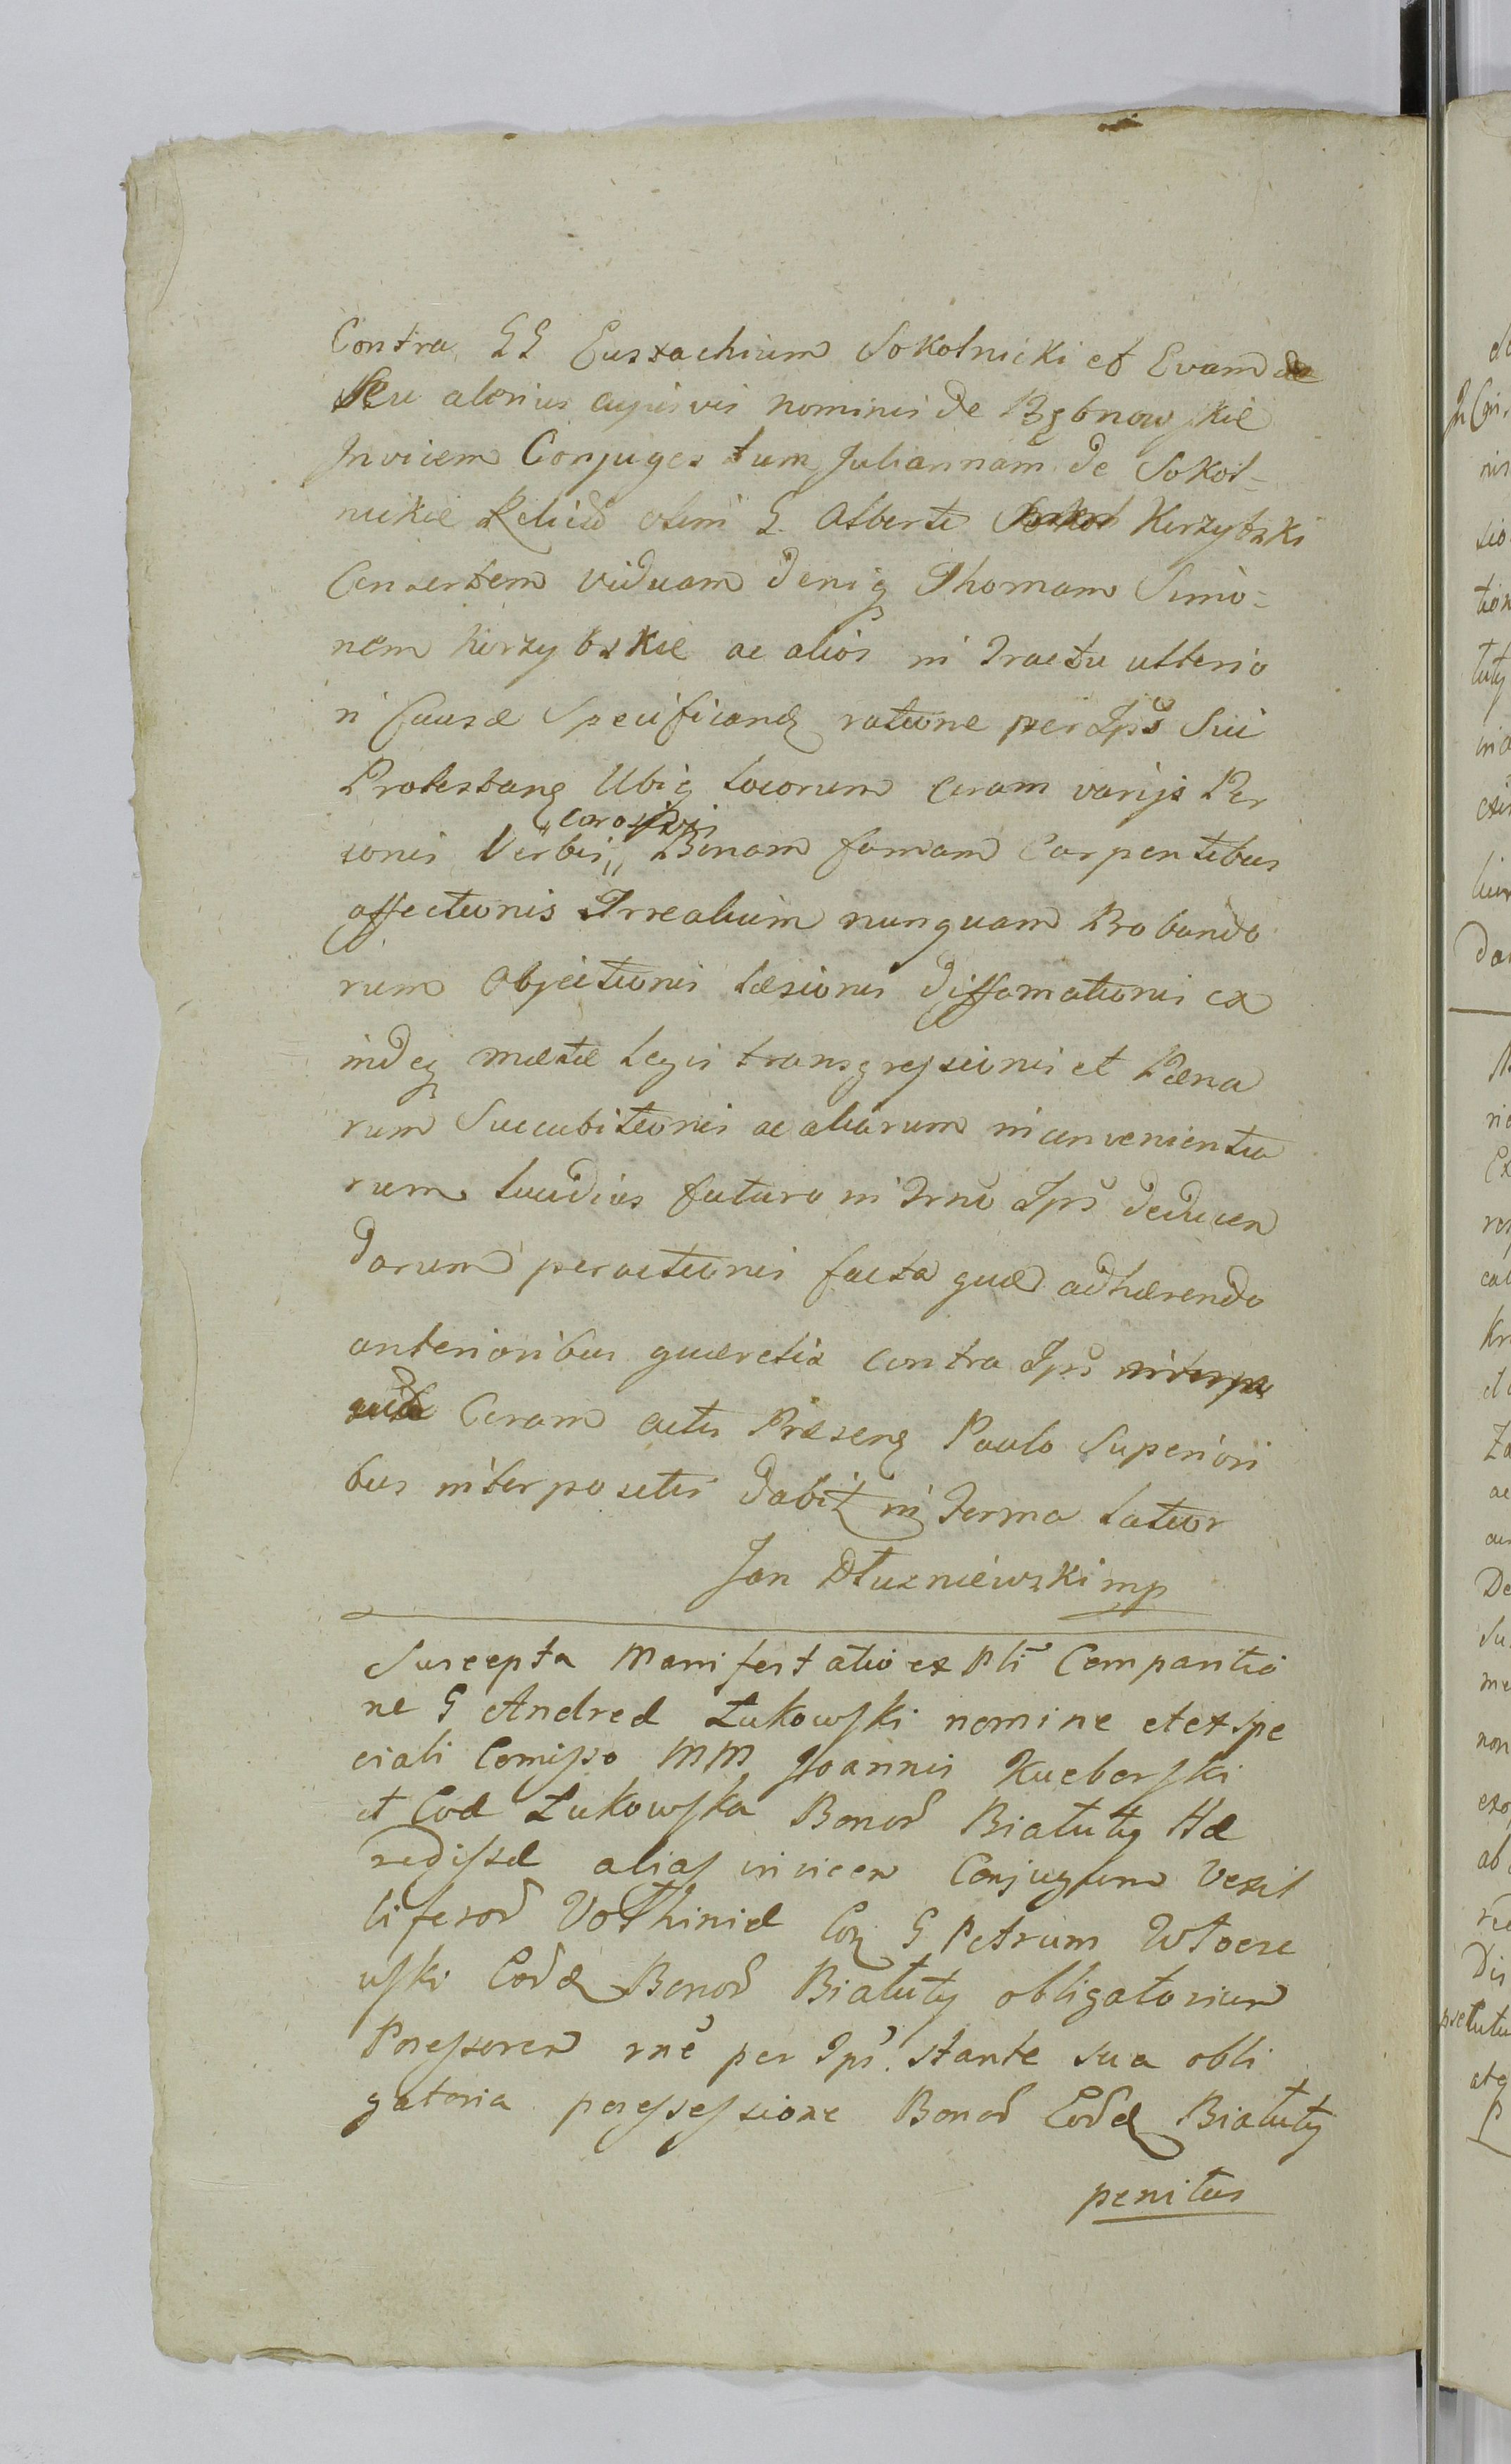 Contra GG Eustachium Sokolnicki et Evam
seu alterius cujusvis nominis de Bębnowskie
Invicem Conjuges tum Juliannam de Sokol-
nickie Relictã olim G. Alberti Kirzybski
Consortem viduam deniq Thomam Simo-
nem Kirzybskie ac alios in Tractu ulterio
ri Causæ Specificanď ratione per Ips̃ Sui
Protestanď Ubiq locorum Coram varijs Per
sonis Verbis corosivis Bonam famam Carpentibus
affectionis Irrealium nunquam Probando
rum Objectionis læsionis diffamationis ex
indeq metæ legis transgressionis et Pæna
rum Succubitionis ac aliarum inconvenientia
rum lucidius futuro in Trnõ Ips̃ deducen
darum peractionis facta quæ adhærendo
anterioribus quærelis contra Ips̃
Coram actis Præsenď Paulo Superiori
bus interpositis dabit in Forma latior
Jan Dłuzniewski mp
Suscepta Manifestatio ex Pli Comparitio
ne G Andreæ Łukowski nomine et ex spe
ciali Comisso MM Joannis Kucborski
et Evæ Łukowska Bonor Białuty Hæ
redissæ alias invicem Conjugum Vexil
liferor Volhiniæ Con G Petrum Włocze
wski Eordem Bonor Białuty obligatorium
Possessorem rne per Ips. stante sua obli
gatoria possessione Bonor Eordem Białuty
penitus